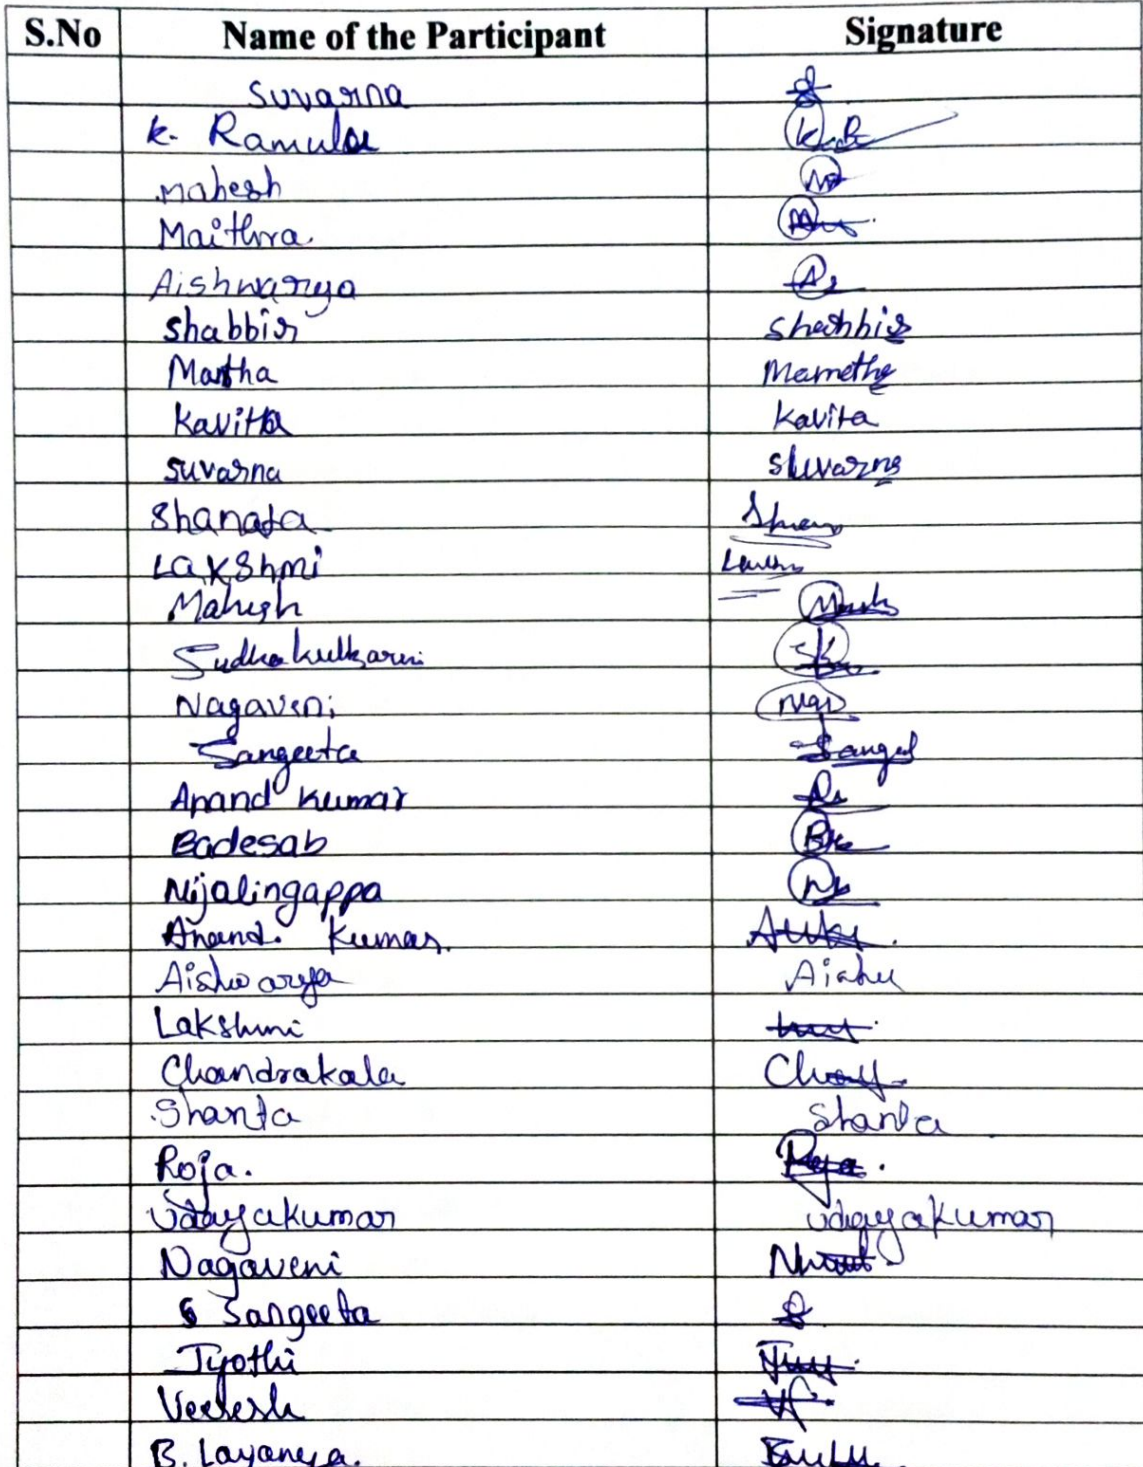 S.No Name of the Participant Signature
Suvarna
K. Ramulu K.R
Mahesh
Maithra
Aishwarya
Shabbir Shabbir
Mamtha Mamatha
Kavitha Kavita
Suvarna Suvarna
Shanata
Lakshmi
Mahesh
Sudha kulkarni SK
Nagaveni Nag
Sangeeta Sanget
Anand Kumar
Badesab
Nijalingappa
Anand. Kumar.
Aishwarya Aishu
Lakshmi
Chandrakala
Shanta Shanta
Roja. Roja.
Udayakumar Udayakumar
Nagaveni
Sangeeta S
Jyothi
Veeresh
B. Lavanya.